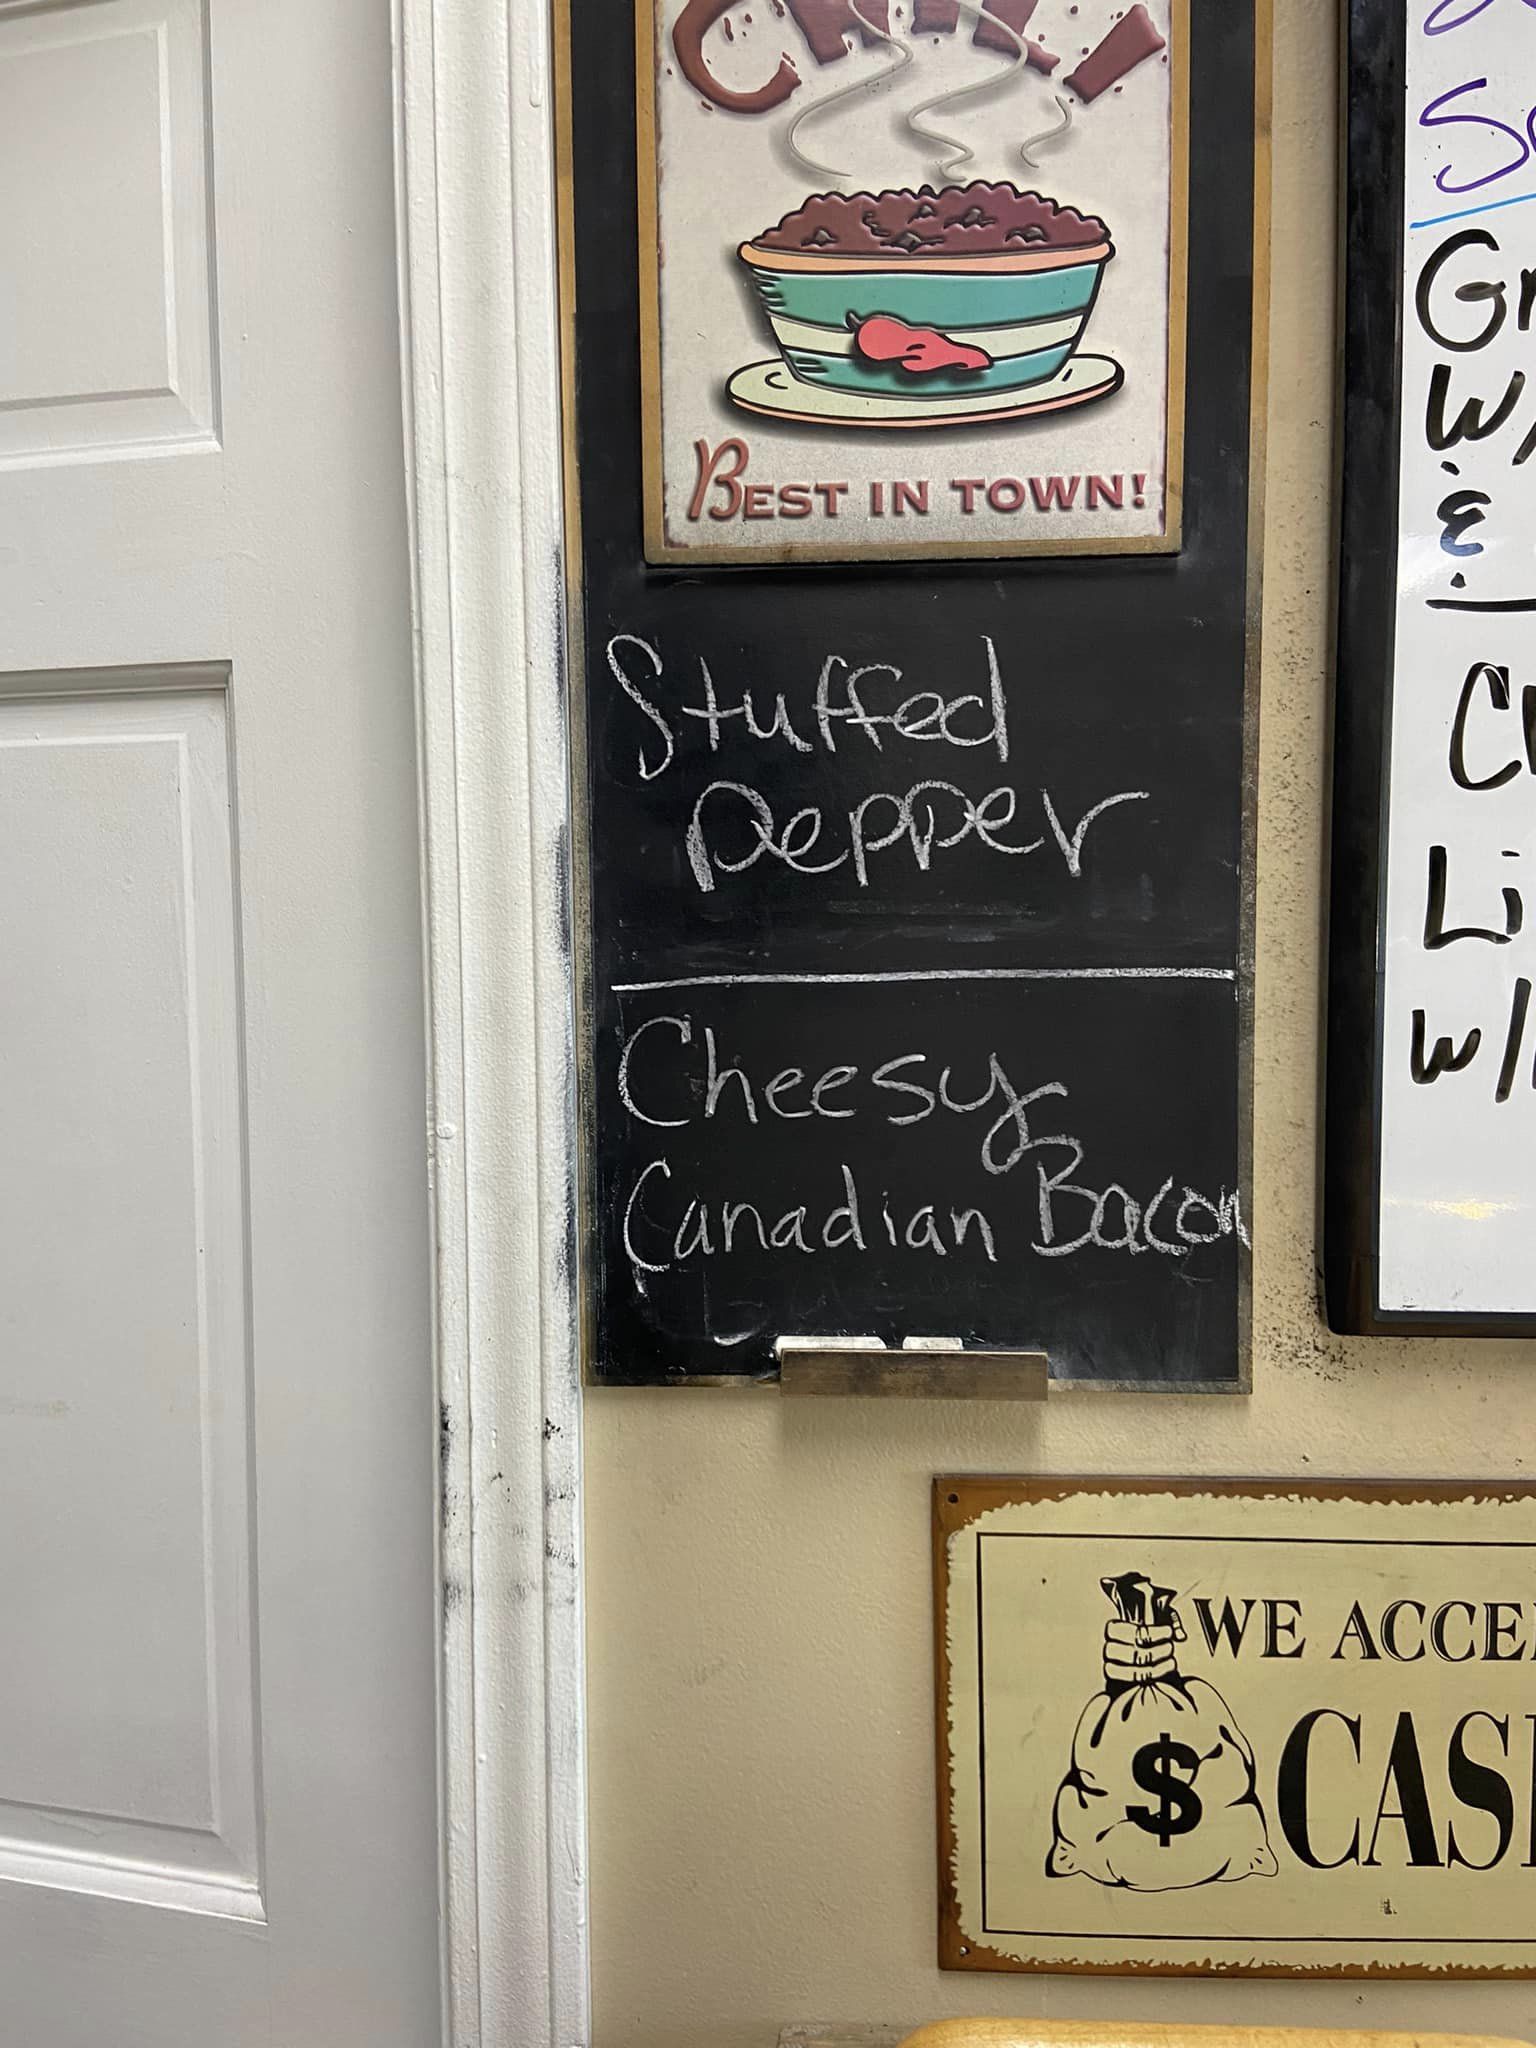 CHILI
BEST IN TOWN!
Stuffed
Pepper
Cheesy
Canadian Bacon
W/
&
Li
w/
WE ACCE
CAS
$